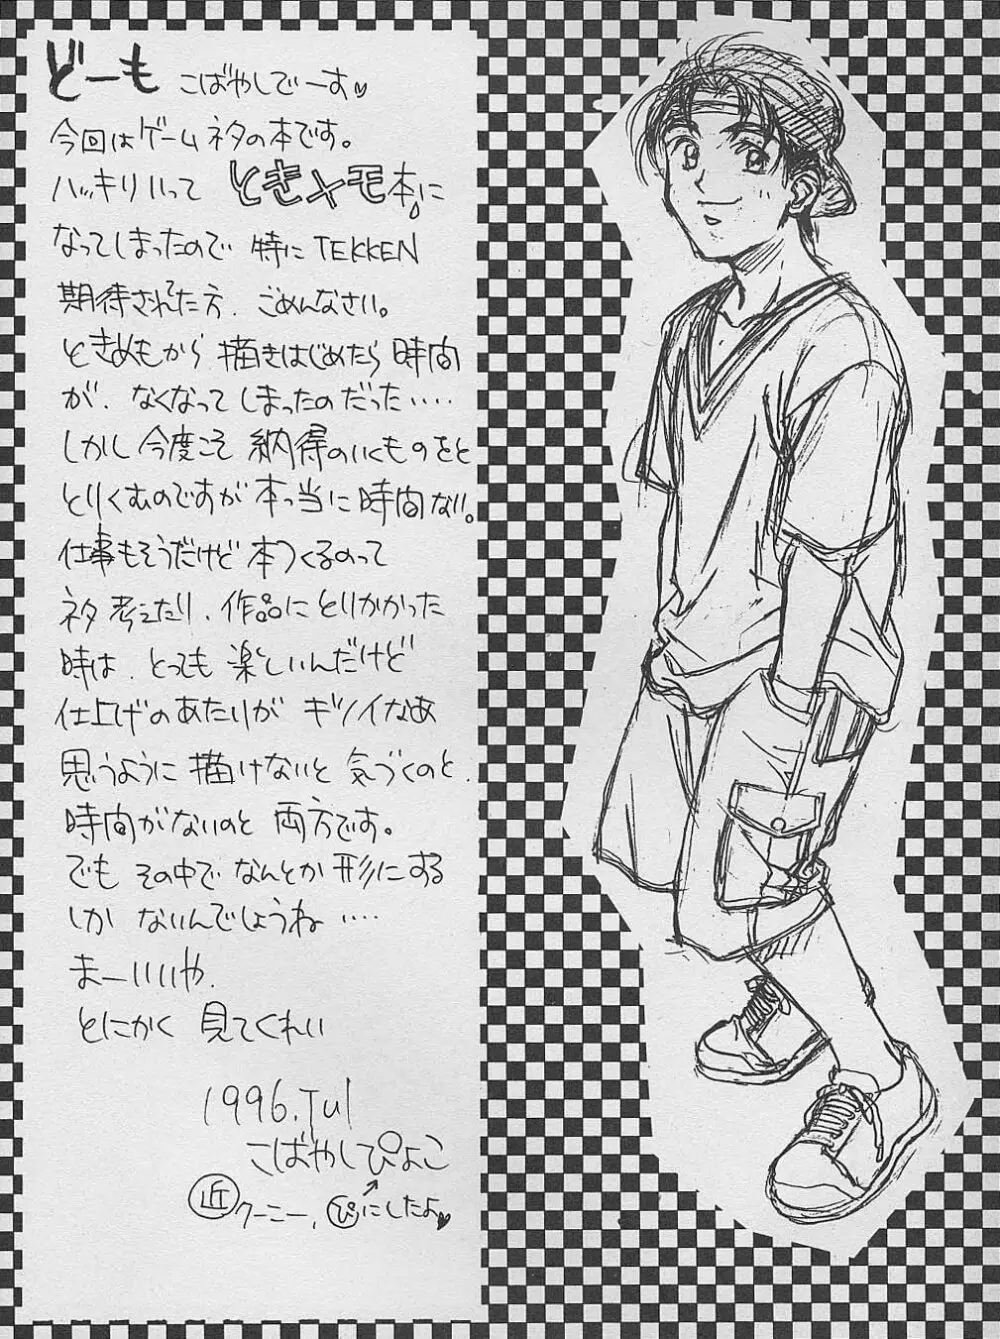 どーも こばやしでーす♡
今回はゲームネタの本です。
ハッキリいって ときメモ本に
なってしまったので 特に TEKKEN
期待されてた方、ごめんなさい。
ときめもから 描きはじめたら 時間
が、なくなって しまったの だった・・・・・
しかし 今度こそ 納得のいくものをと
とりくむのですが 本っ当に 時間ない。
仕事もそうだけど 本つくるのって
ネタ 考えたり、作品に とりかかった
時は、とっても 楽しいんだけど
仕上げのあたりが キツイなあ
思うように 描けないと 気づくのと、
時間がないのと 両方です。
でも その中で なんとか 形にする
しか ないんでしょうね・・・・
まーいいや、
とにかく 見てくれい
1996.Jul
こばやしぴよこ
近 クーニー、ぴにしたよ♡